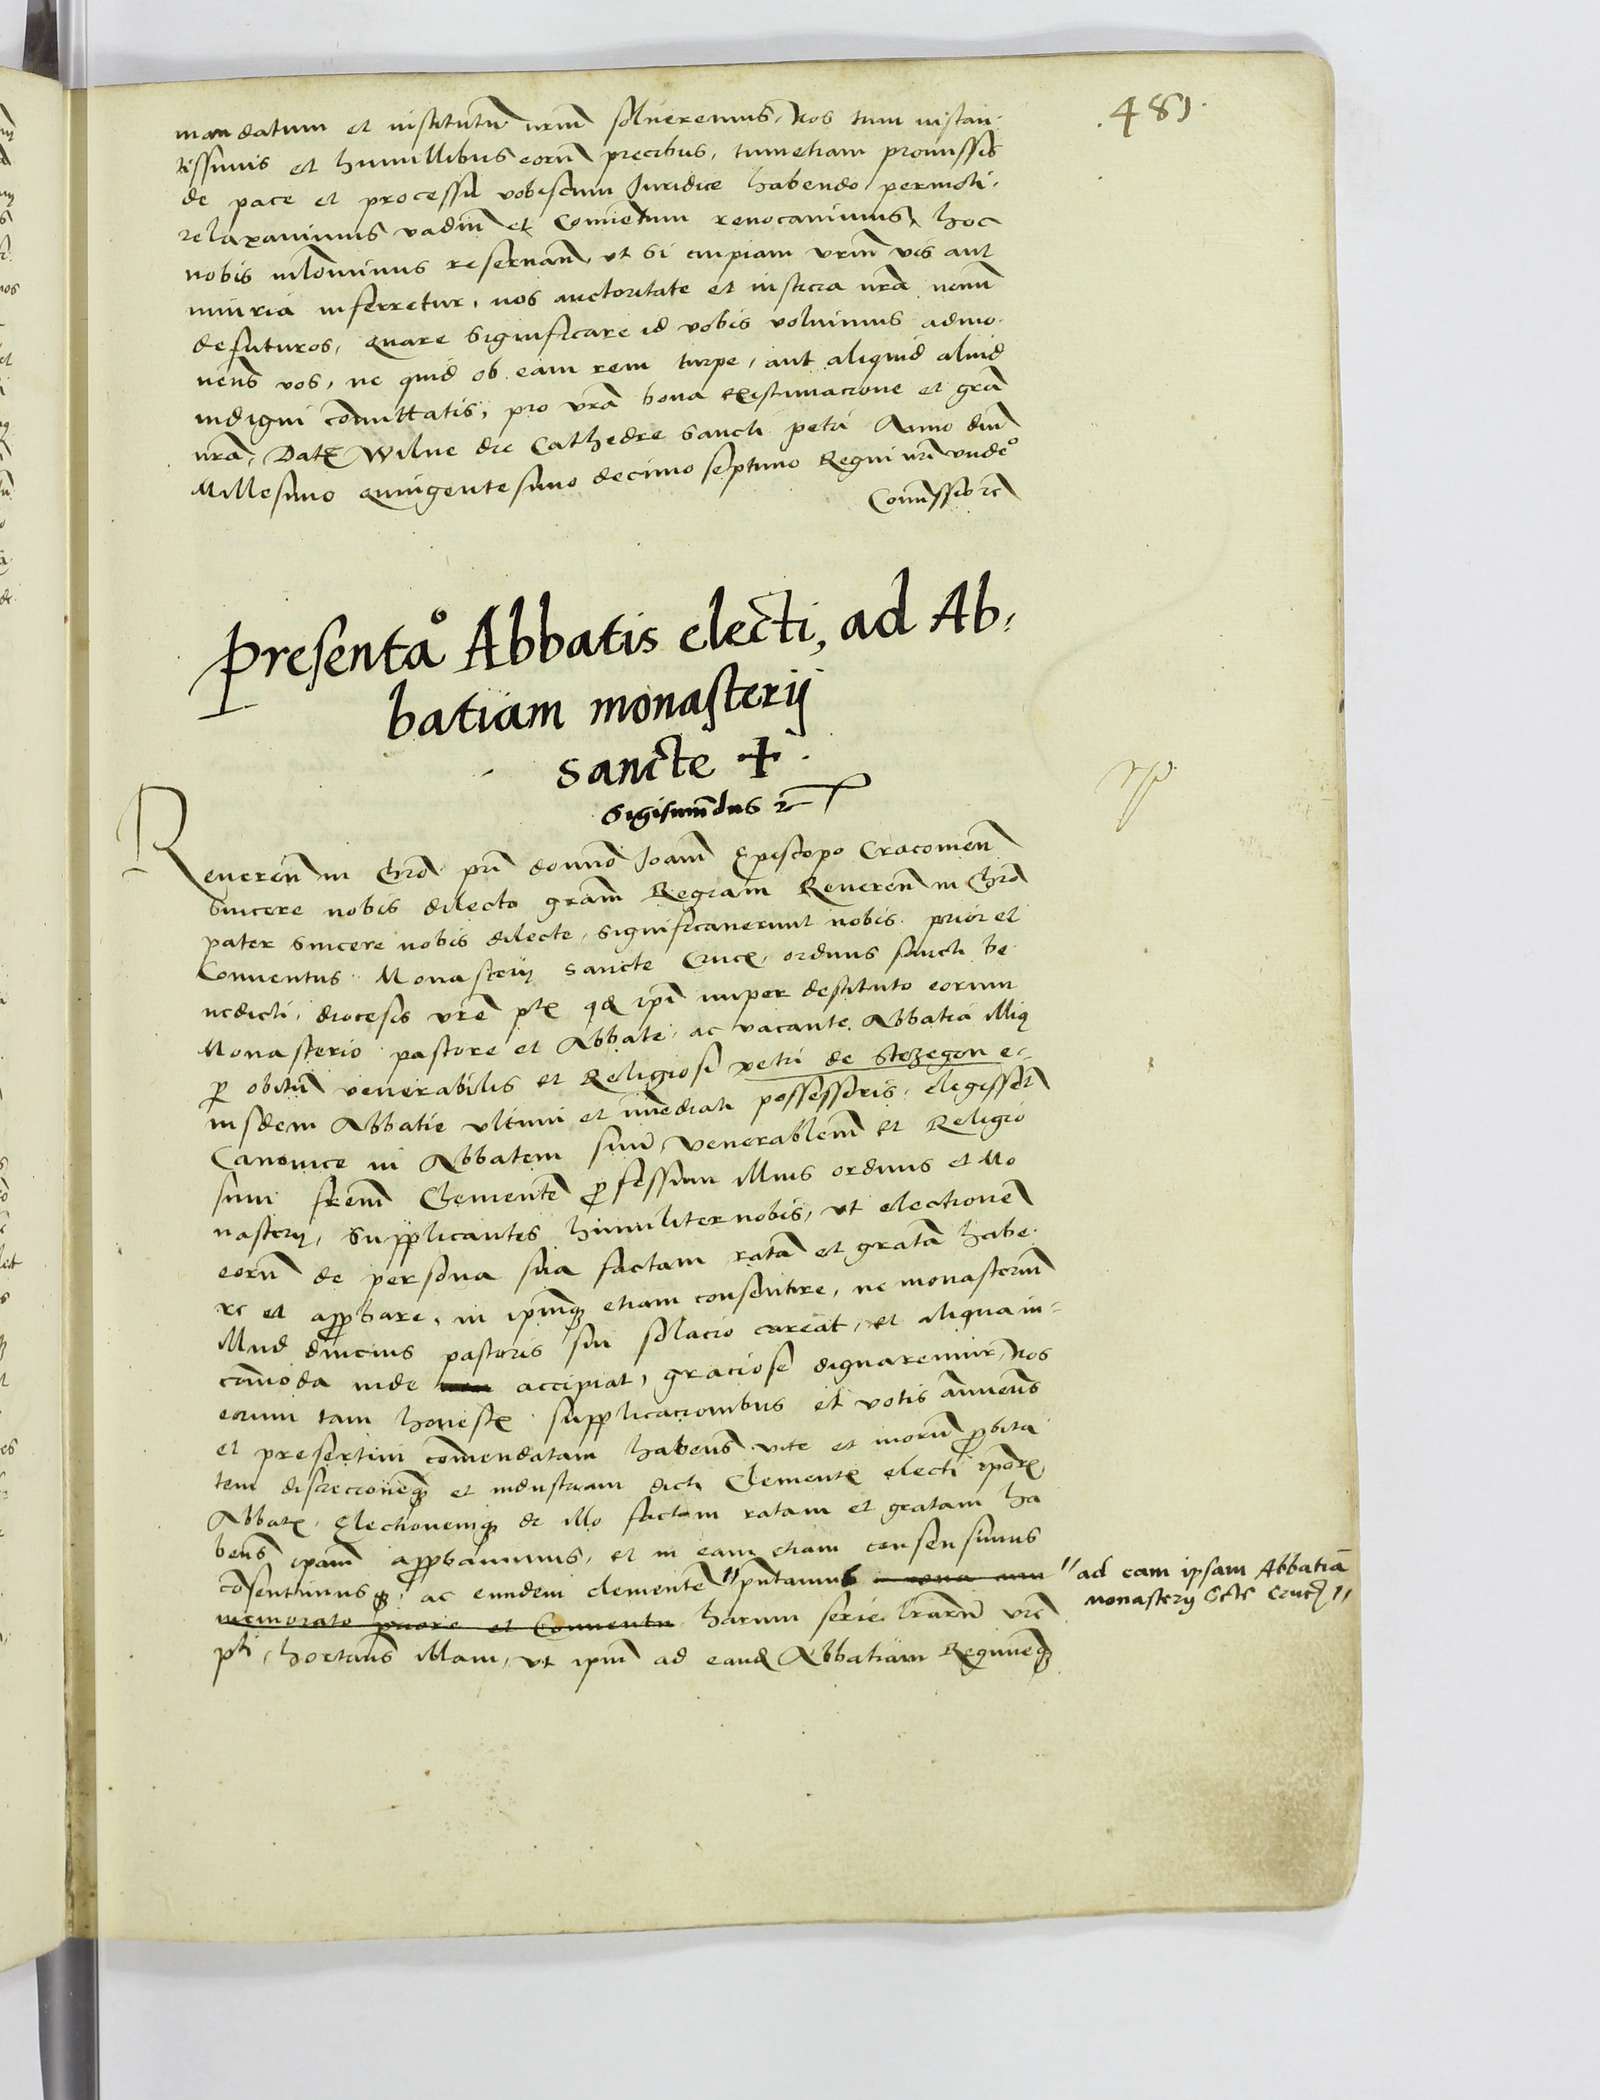 481.
mandatum et institutũ nrũm solueremus, Nos tum instan-
tissimis et humillibus eorũ precibus, tumetiam promissis
de pace et processu vobiscum Iuridice habendo permoti,
relaxauimus vadiũ et Comietum reuocauimus, hoc
nobis nilominus reseruañ, vt si cuipiam vrũm vis aut
iniuria inferretur, nos auctoritate et iusticia nrã nemi
defuturos, quare significare id vobis voluimus admo-
nens vos, ne quid ob eam rem turpe, aut aliquid aliud
indigni comittatis, pro vrã bona existimacione et grã
nrã, Datẽ Wilne die Cathedre Sancti petri Anno dni
Millesimo quingentesimo decimo septimo Regni nri vnde°
Comissio rẽ
Presenta° Abbatis electi, ad Ab-
batiam monasterij
sancte +.
Sigismũdus rc
Reuereñ in Chrõ pri domno Ioañi Episcopo Cracouieñ
sincere nobis dilecto grãm Regiam Reuereñ in Chrõ
pater sincere nobis dilecte, significauerunt nobis prior et
Conuentus Monasterij sancte Crucẽ, ordinis sancti be
nedicti, diocesis vrẽ ptẽ qd ipi nuper destituto eorum
Monasterio pastore et Abbate, ac vacante Abbatia illiq
p obitũ venerabilis et Religiosi petri de Strzegom e-
iusdem Abbatie vltimi et imediati possessoris, elegisset
Canonice in Abbatem suũ, venerablem et Religio
sum frem Clementẽ pfessum illius ordinis et Mo
nasterij, supplicantes humiliter nobis, vt electionẽ
eorũ de persona sua factam ratã et gratã habe-
re et approbare, in ipmq etiam consentire, ne monasteriũ
illud diucius pastoris sui solacio careat, et aliqua in-
cõmoda inde accipiat, graciose dignaremur, Nos
eorum tam honestẽ supplicacionibus et votis annuens
et presertim comendatam habens vite et morũ pbita
tem discrecionemq et industriam dicti Clementẽ electi ipõrẽ
Abbatẽ, Electionemq de illo factam ratam et gratam ha
bens ipam approbauimus, et in eam etiam consensimus
cõsentimusq, ac eundem clementẽ "pntamus una cum "ad eam ipsam Abbatiã
monasterij Scte Crucẽ"
memorato priore et Conuentu harum serie lrarũ vrẽ
pti, hortans illam, vt ipm ad eand Abbatiam Regimenq